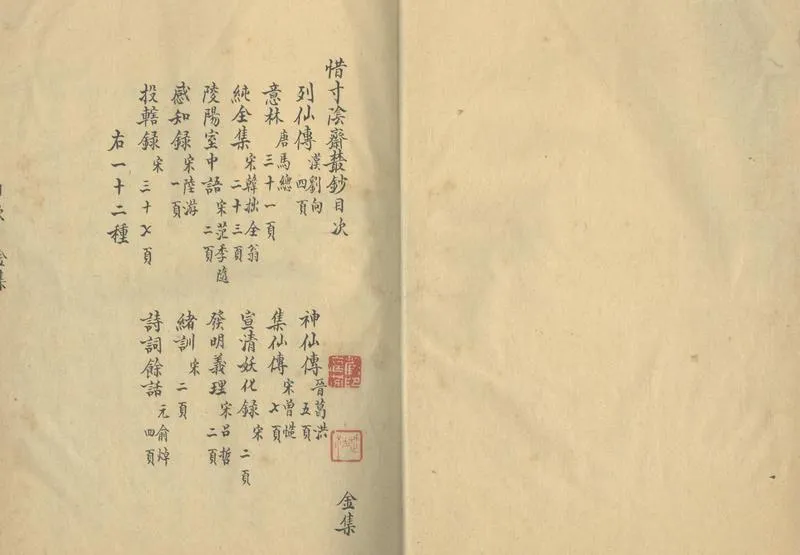 惜寸陰齋叢鈔目次　金集
列仙傳　漢劉向　四頁　神仙傳　晉葛洪　五頁
意林　唐馬總　三十一頁　集仙傳　宋曾慥　七頁
純全集　宋韓拙全翁　二十三頁　宣清妖化録　宋　二頁
陵陽室中語　宋范季隨　二頁　發明義理　宋呂哲　二頁
感知録　宋陸游　一頁　緒訓　宋　二頁
投轄録　宋　三十七頁　詩詞餘話　元俞焯　四頁
右一十二種